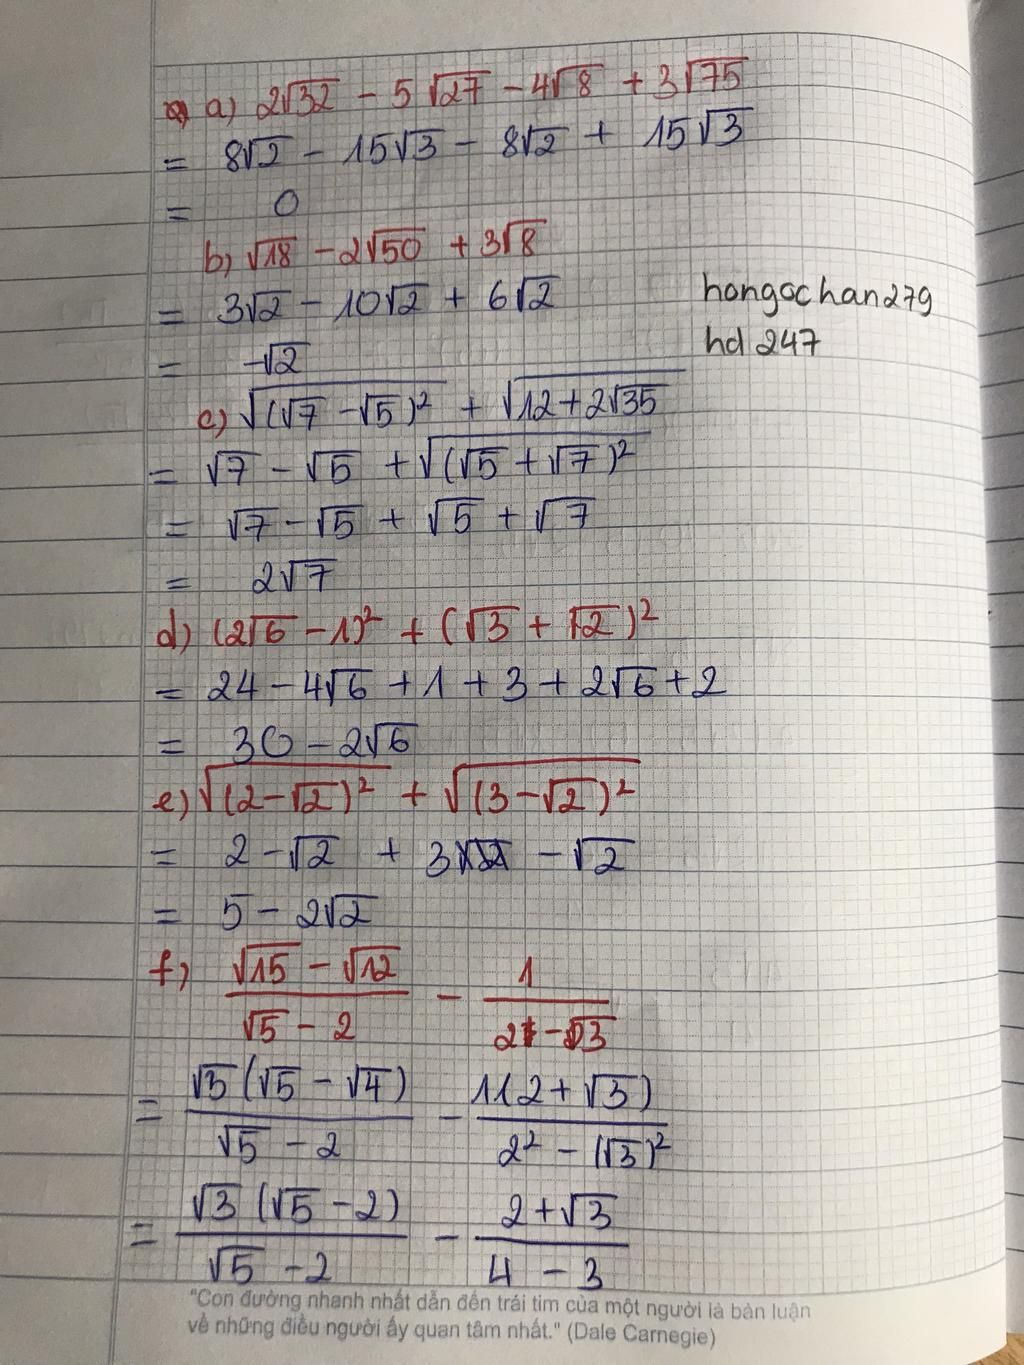 a) 2√32 - 5√27 - 4√8 + 3√75
= 8√2 - 15√3 - 8√2 + 15√3
= 0
b) √18 - 2√50 + 3√8
= 3√2 - 10√2 + 6√2
hongochan279
= -√2
hd 247
c) √((√7 - √5)²) + √(12 + 2√35)
= √7 - √5 + √((√5 + √7)²)
= √7 - √5 + √5 + √7
= 2√7
d) (2√6 - 1)² + (√3 + √2)²
= 24 - 4√6 + 1 + 3 + 2√6 + 2
= 30 - 2√6
e) √((2 - √2)²) + √((3 - √2)²)
= 2 - √2 + 3 - √2
= 5 - 2√2
f) (√15 - √12)/(√5 - 2) - 1/(2 - √3)
= √3(√5 - √4)/(√5 - 2) - 1(2 + √3)/(2² - (√3)²)
= √3(√5 - 2)/(√5 - 2) - (2 + √3)/(4 - 3)
"Con đường nhanh nhất dẫn đến trái tim của một người là bàn luận
về những điều người ấy quan tâm nhất." (Dale Carnegie)